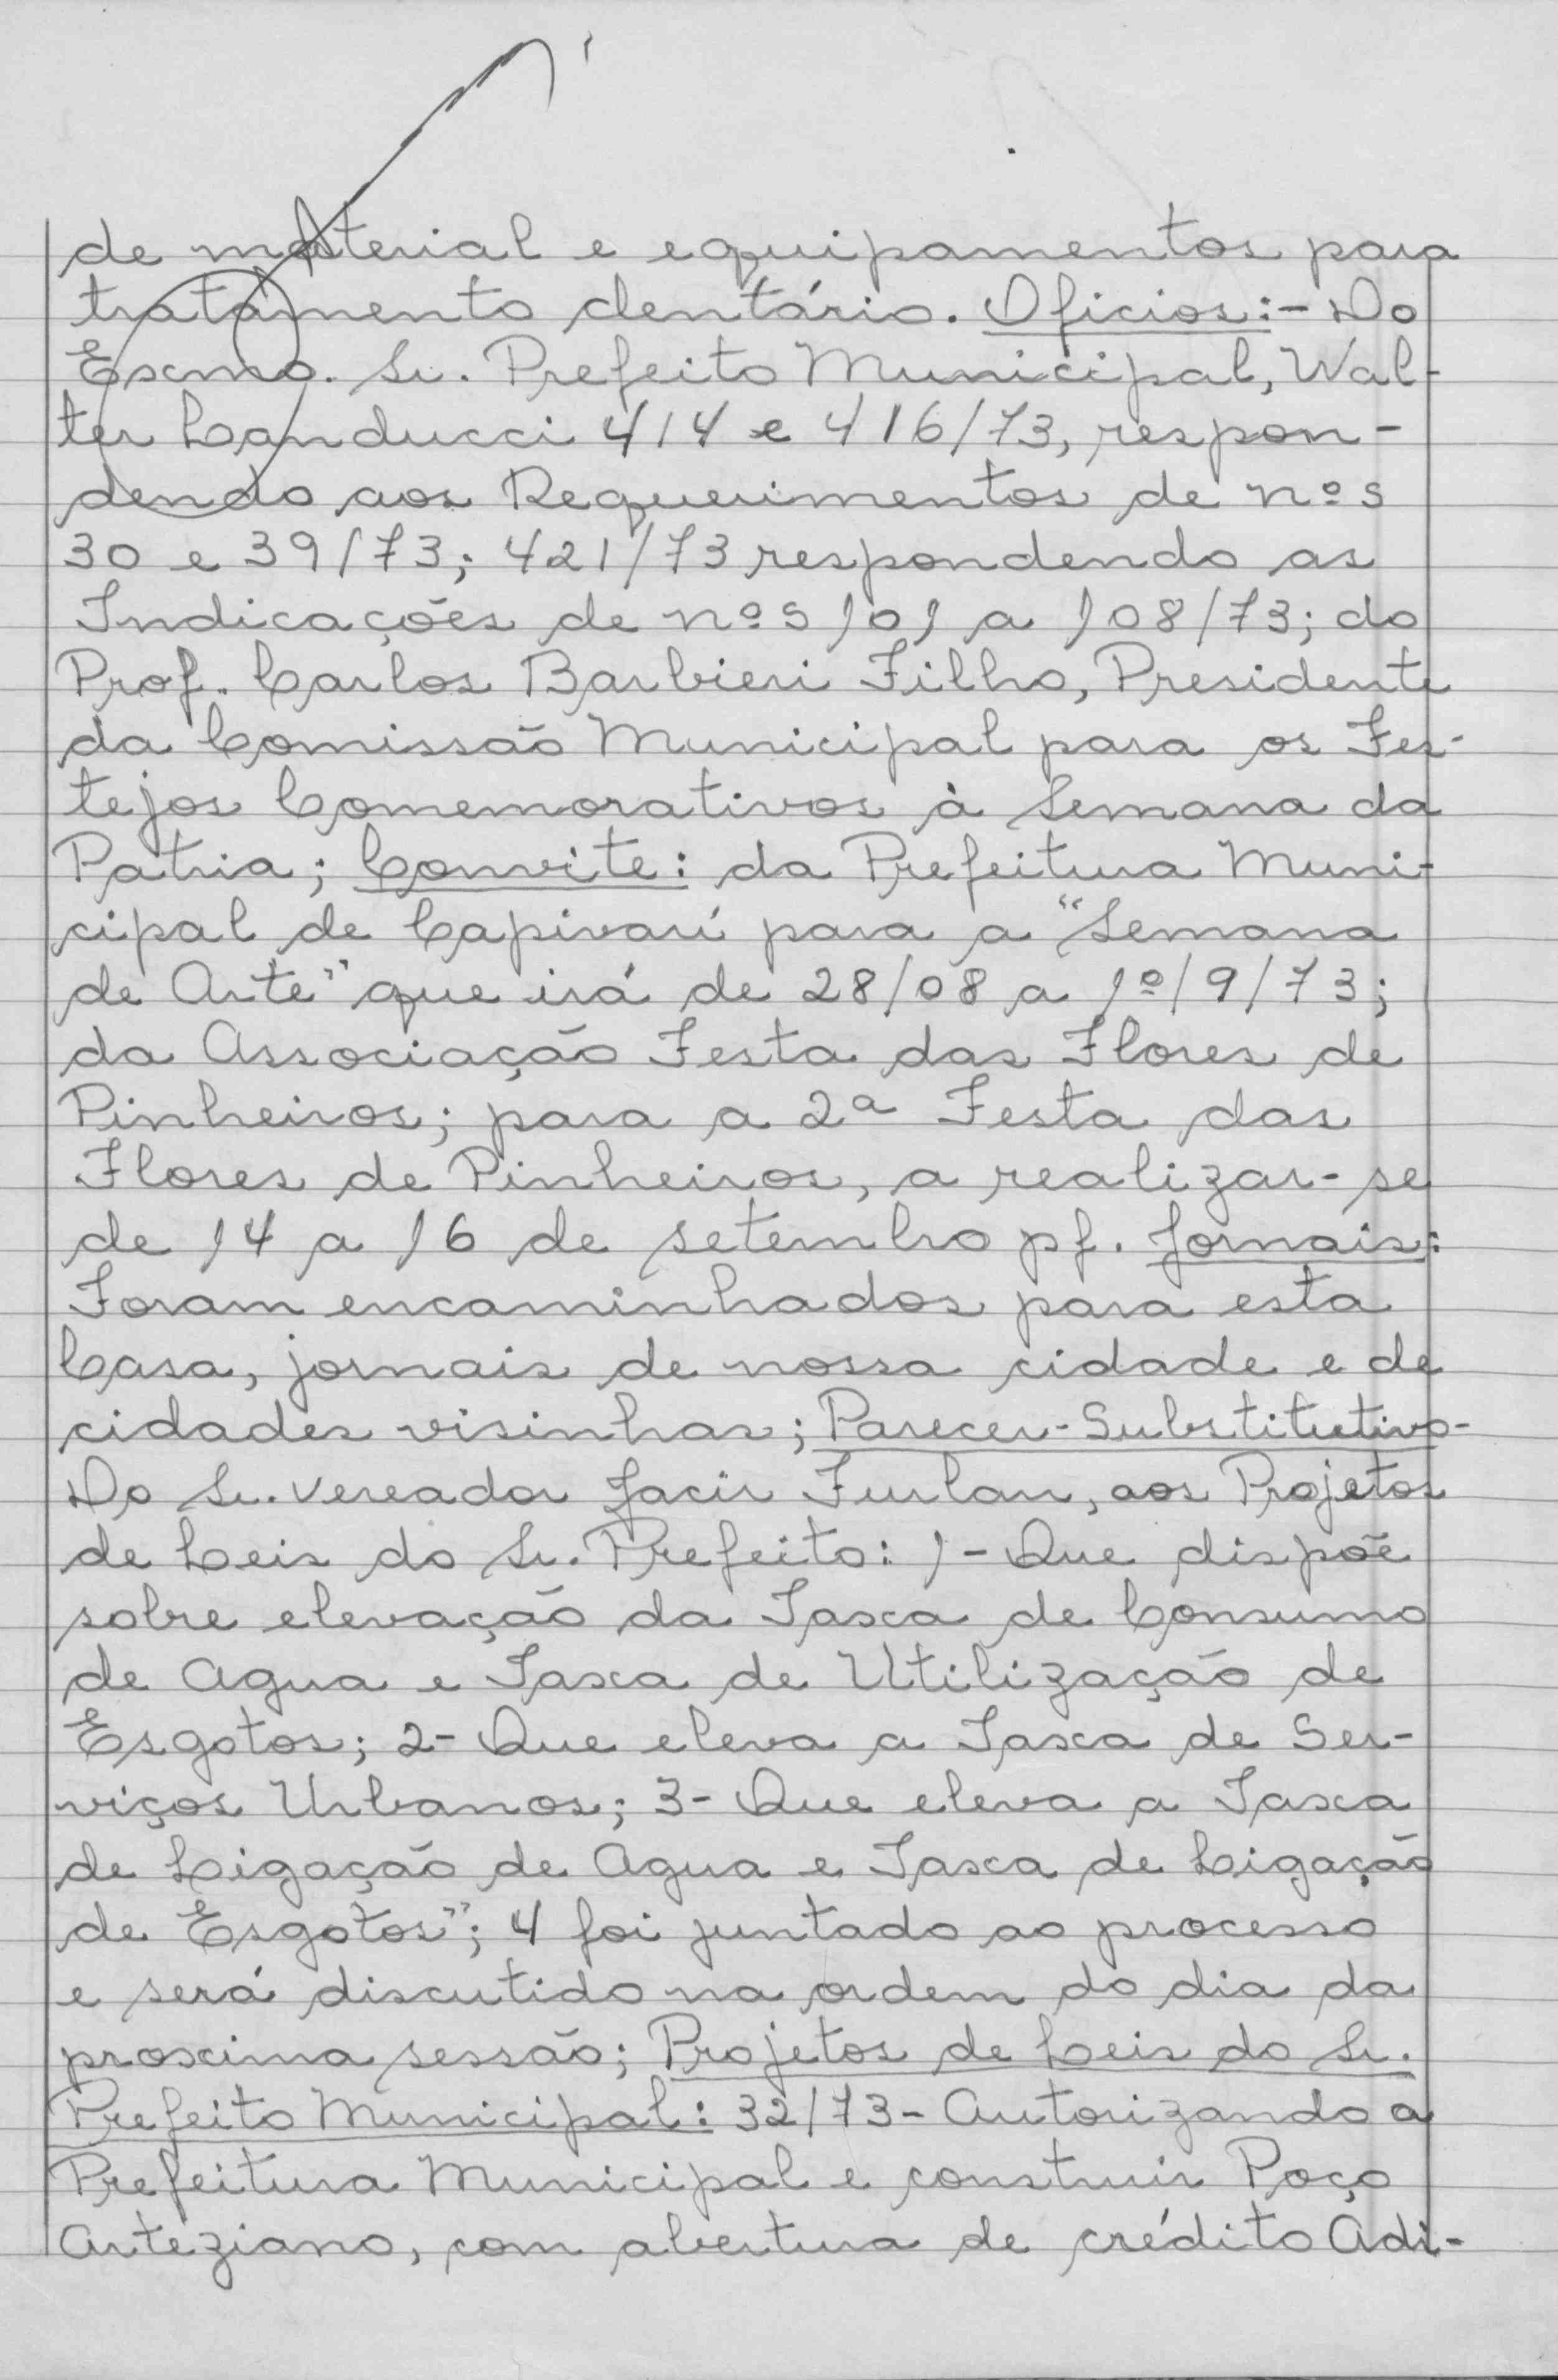 de material e equipamentos para
tratamento dentário. Oficios:- Do
Excmo. Sr. Prefeito Municipal, Wal-
ter Canducci 414 e 416/73, respon-
dendo aos Requerimentos de nºs
30 e 39/73; 421/73 respondendo as
Indicações de nºs 101 a 108/73; do
Prof. Carlos Barbieri Filho, Presidente
da Comissão Municipal para os Fes-
tejos Comemorativos à Semana da
Patria; Convite: da Prefeitura Muni-
cipal de Capivarí para a "Semana
de Arte" que irá de 28/08 a 1º/9/73;
da Associação Festa das Flores de
Pinheiros; para a 2ª Festa das
Flores de Pinheiros, a realizar-se
de 14 a 16 de setembro pf. Jornais:
Foram encaminhados para esta
Casa, jornais de nossa cidade e de
cidades visinhas; Parecer-Substitutivo-
Do Sr. vereador Jacir Furlan, aos Projetos
de Leis do Sr. Prefeito: 1- Que dispõe
sobre elevação da Taxa de Consumo
de Agua e Taxa de Utilização de
Esgotos; 2- Que eleva a Taxa de Ser-
viços Urbanos; 3- Que eleva a Taxa
de Ligação de Agua e Taxa de Ligação
de Esgotos"; 4 foi juntado ao processo
e será discutido na ordem do dia da
proxima sessão; Projetos de Leis do Sr.
Prefeito Municipal: 32/73- Autorizando a
Prefeitura Municipal e construir Poço
Arteziano, com abertura de crédito Adi-